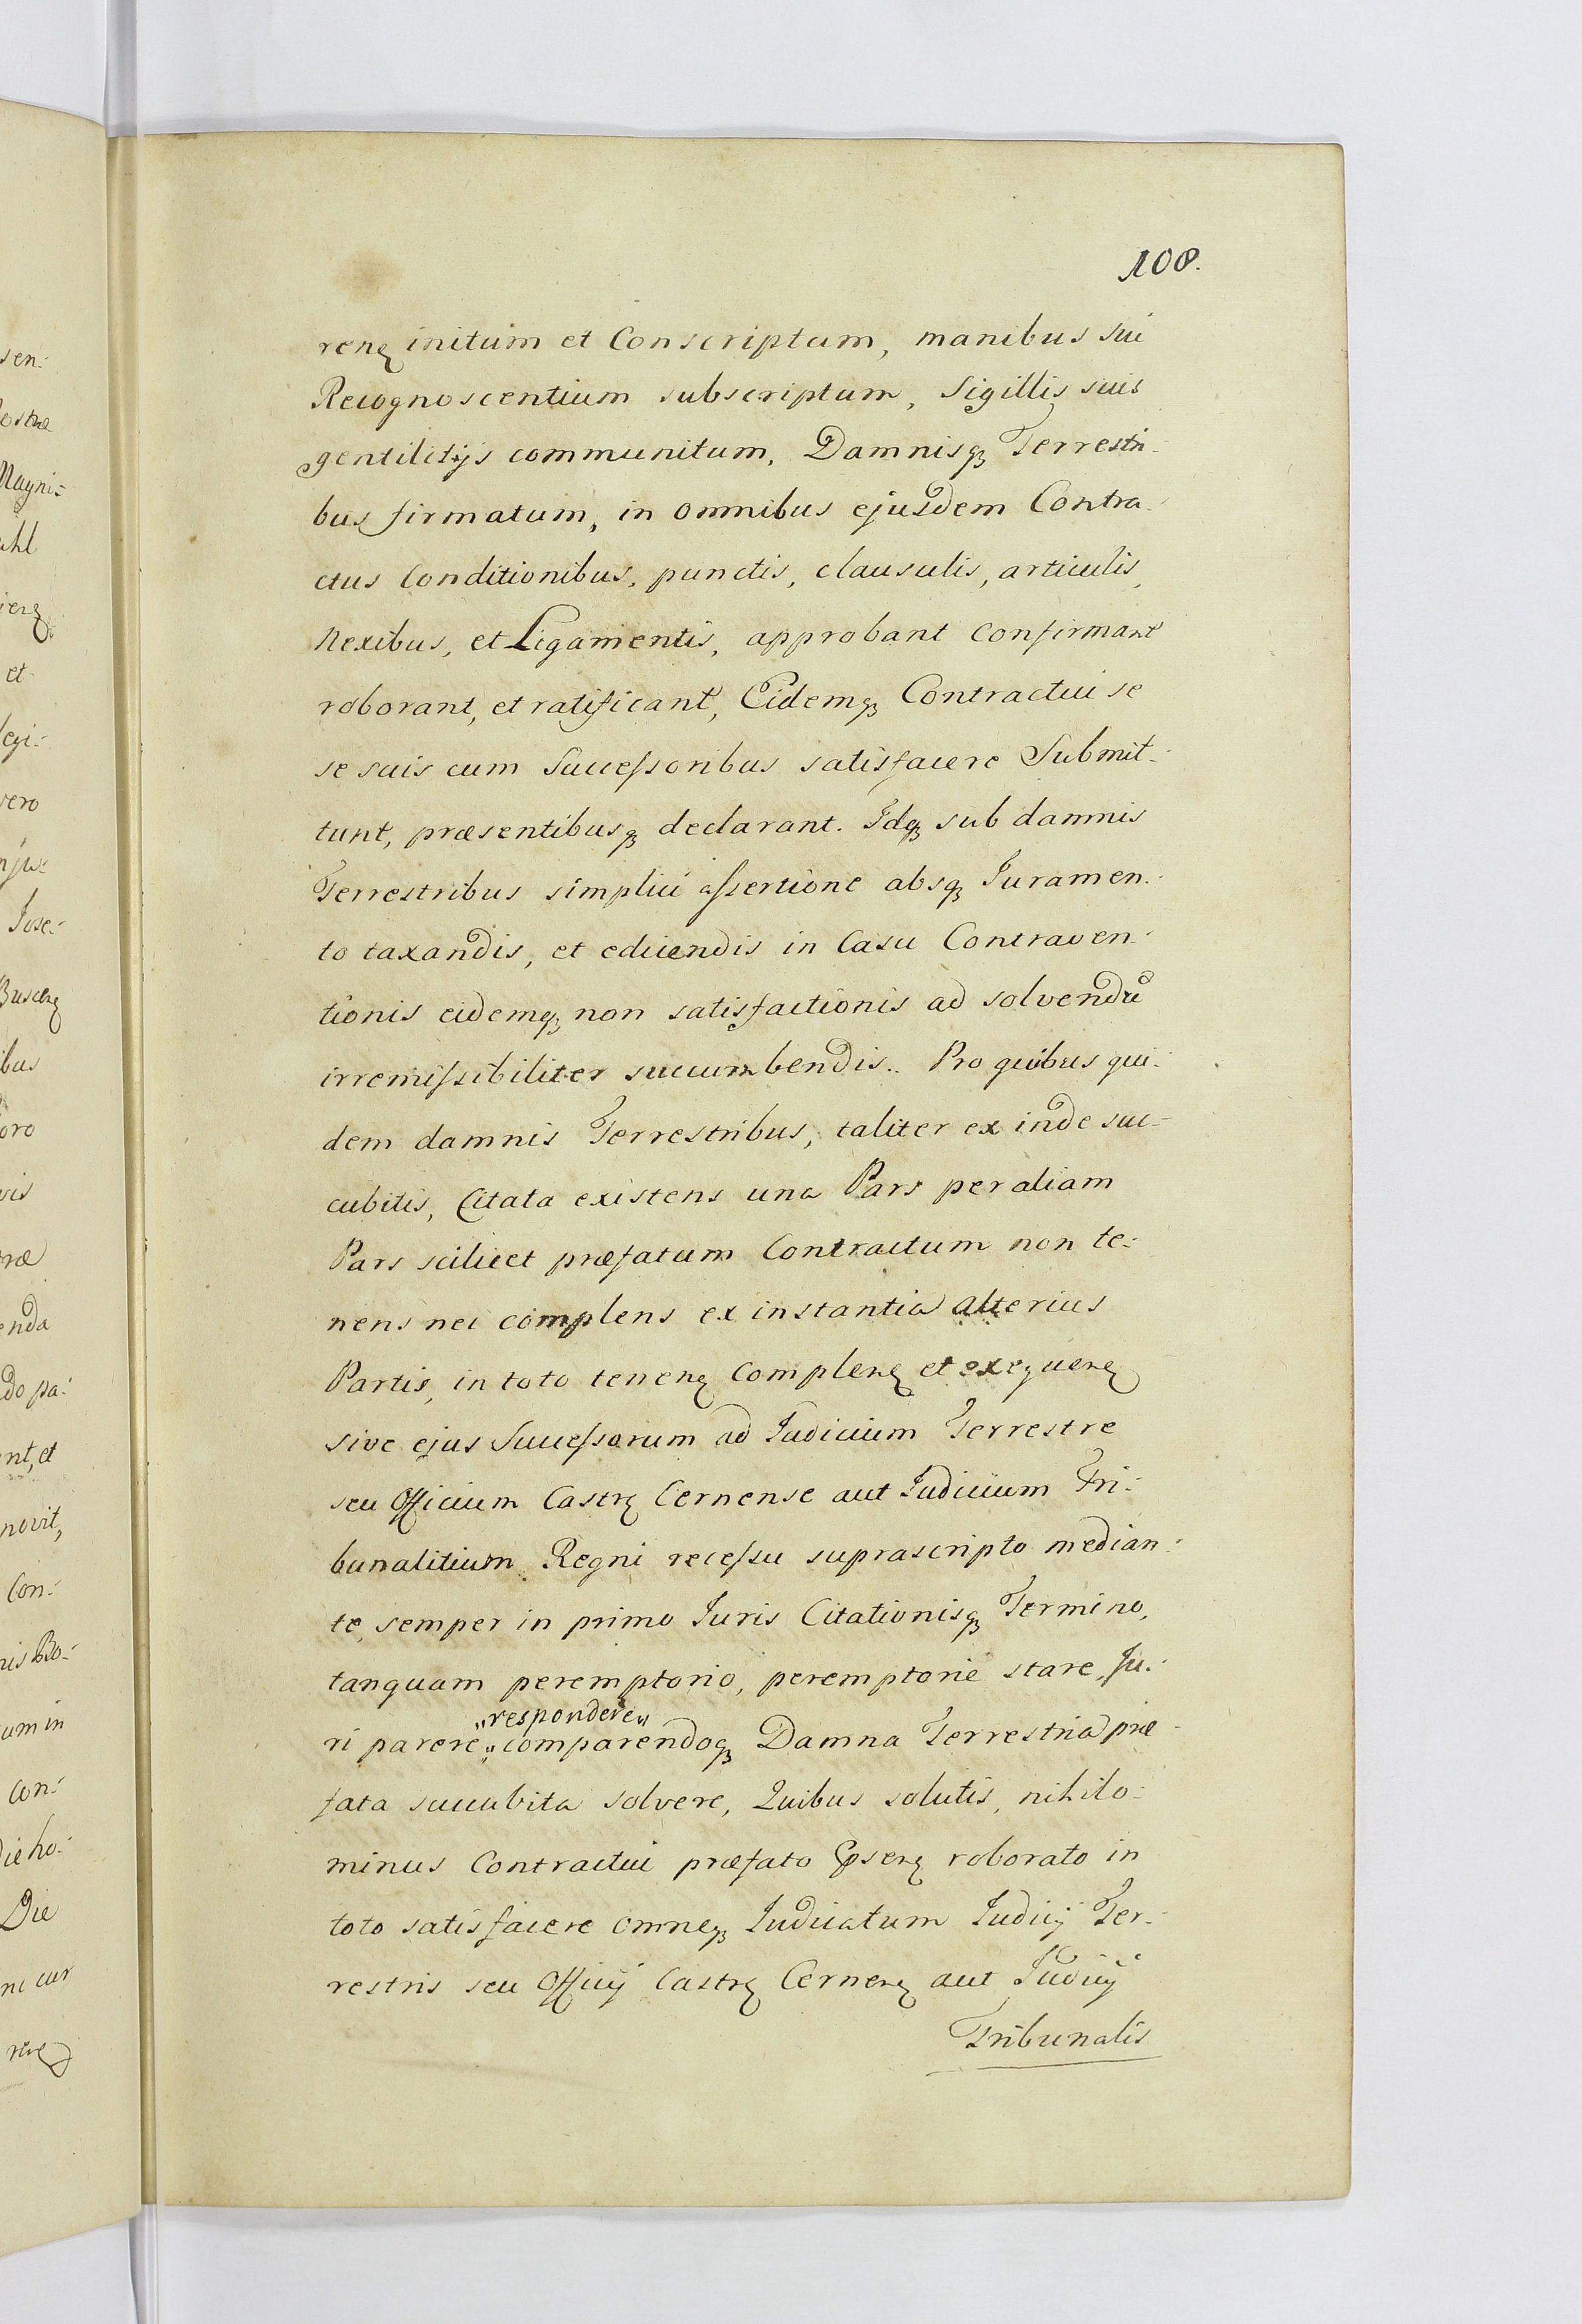 108.
renꝫ initum et Conscriptum, manibus sui
Recognoscentium subscriptum, Sigillis suis
gentilitijs communitum, Damnisqꝫ Terrestri-
bus firmatum, in omnibus ejusdem Contra-
ctus Conditionibus, punctis, clausulis, articulis,
Nexibus, et Ligamentis, approbant confirmant
roborant, et ratificant, Eidemqꝫ Contractui se
se suis cum Successoribus satisfacere Submit-
tunt, præsentibusqꝫ declarant. Idqꝫ sub damnis
Terrestribus simplici assertione absqꝫ Juramen-
to taxandis, et edicendis in Casu Contraven-
tionis eidemqꝫ non satisfactionis ad solvendũ
irremissibiliter succumbendis.. Pro quibus qui-
dem damnis Terrestribus, taliter ex inde suc-
cubitis, Citata existens una Pars per aliam
Pars scilicet præfatum Contractum non te-
nens nec complens ex instantia alterius
Partis, in toto tenenꝫ complenꝫ et exequenꝫ
sive ejus Successorum ad Judicium Terrestre
seu Officium Castrꝫ Cernense aut Judicium Tri-
bunalitium Regni recessu suprascripto median-
te, semper in primo Juris Citationisqꝫ Termino,
tanquam peremptorio, peremptorie stare, Ju-
„respondere„
ri parere „ comparendoqꝫ Damna Terrestria præ-
fata succubita solvere, Quibus solutis, nihilo-
minus Contractui præfato Pserꝫ roborato in
toto satisfacere omneqꝫ Judicatum Judicij Ter-
restris seu Officij Castrꝫ Cernenꝫ aut Judicij
Tribunalis
sen-
Magni-
et
legi-
vero
Jose-
enda
do pa-
nt, et
novit,
Con-
nis Bo-
um in
con-
die ho-
Die